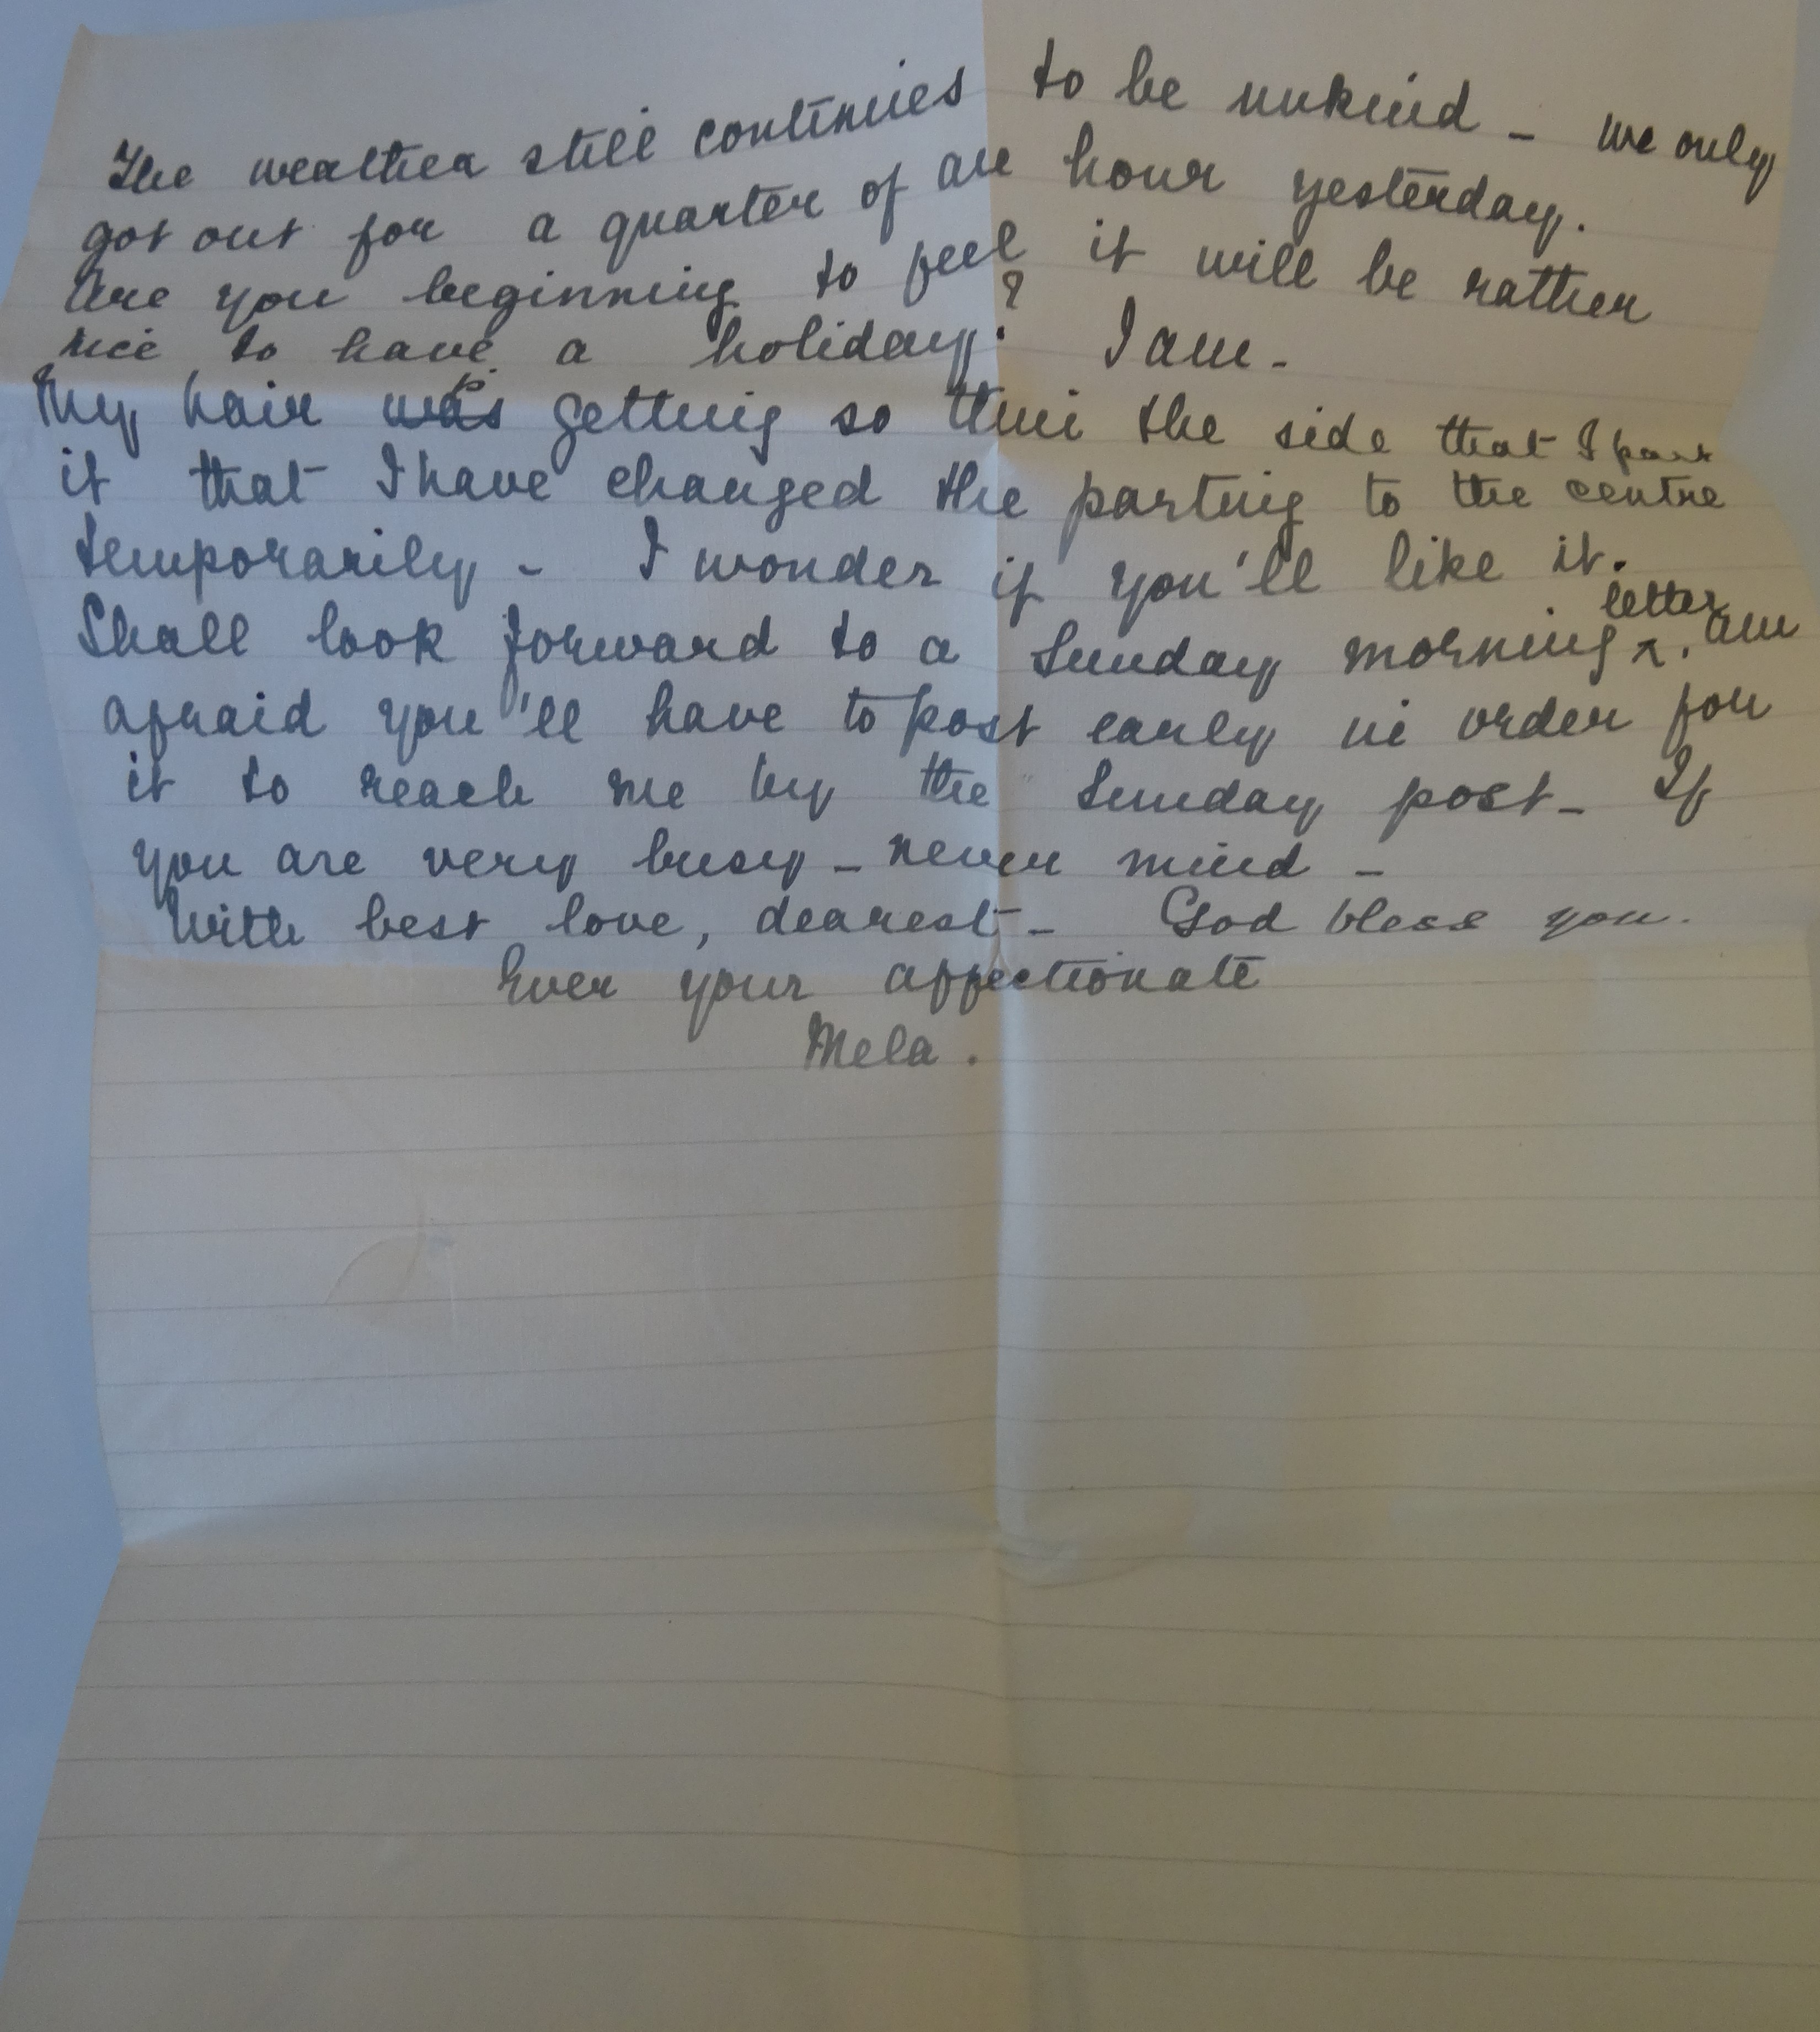 The weather still continues to be unkind – we only
got out for a quarter of an hour yesterday.
Are you beginning to feel it will be rather
nice to have a holiday? I am –
My hair was getting so thin the side that I part
it that I have changed the parting to the centre
temporarily – I wonder if you'll like it.
Shall look forward to a Sunday morning letter. Am
afraid you'll have to post early in order for
it to reach me by the Sunday post – If
you are very busy – never mind –
With best love, dearest – God bless you.
Ever your affectionate
Mela.